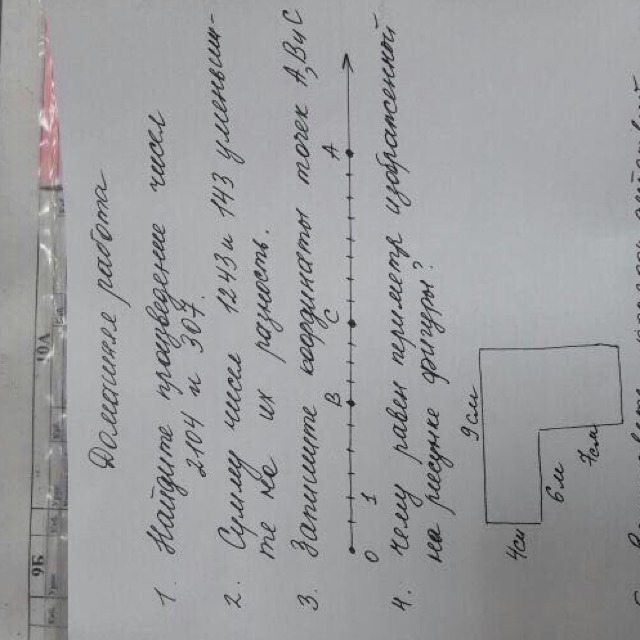 Домашняя работа
1. Найдите произведение чисел
2104 и 307.
2. Сумму чисел 1243 и 143 уменьши-
те на их разность.
3. Запишите координаты точек A, B и C
0 1 B C A
4. Чему равен приметр изображенной
на рисунке фигуры?
9 см
4 см
6 м
7 см